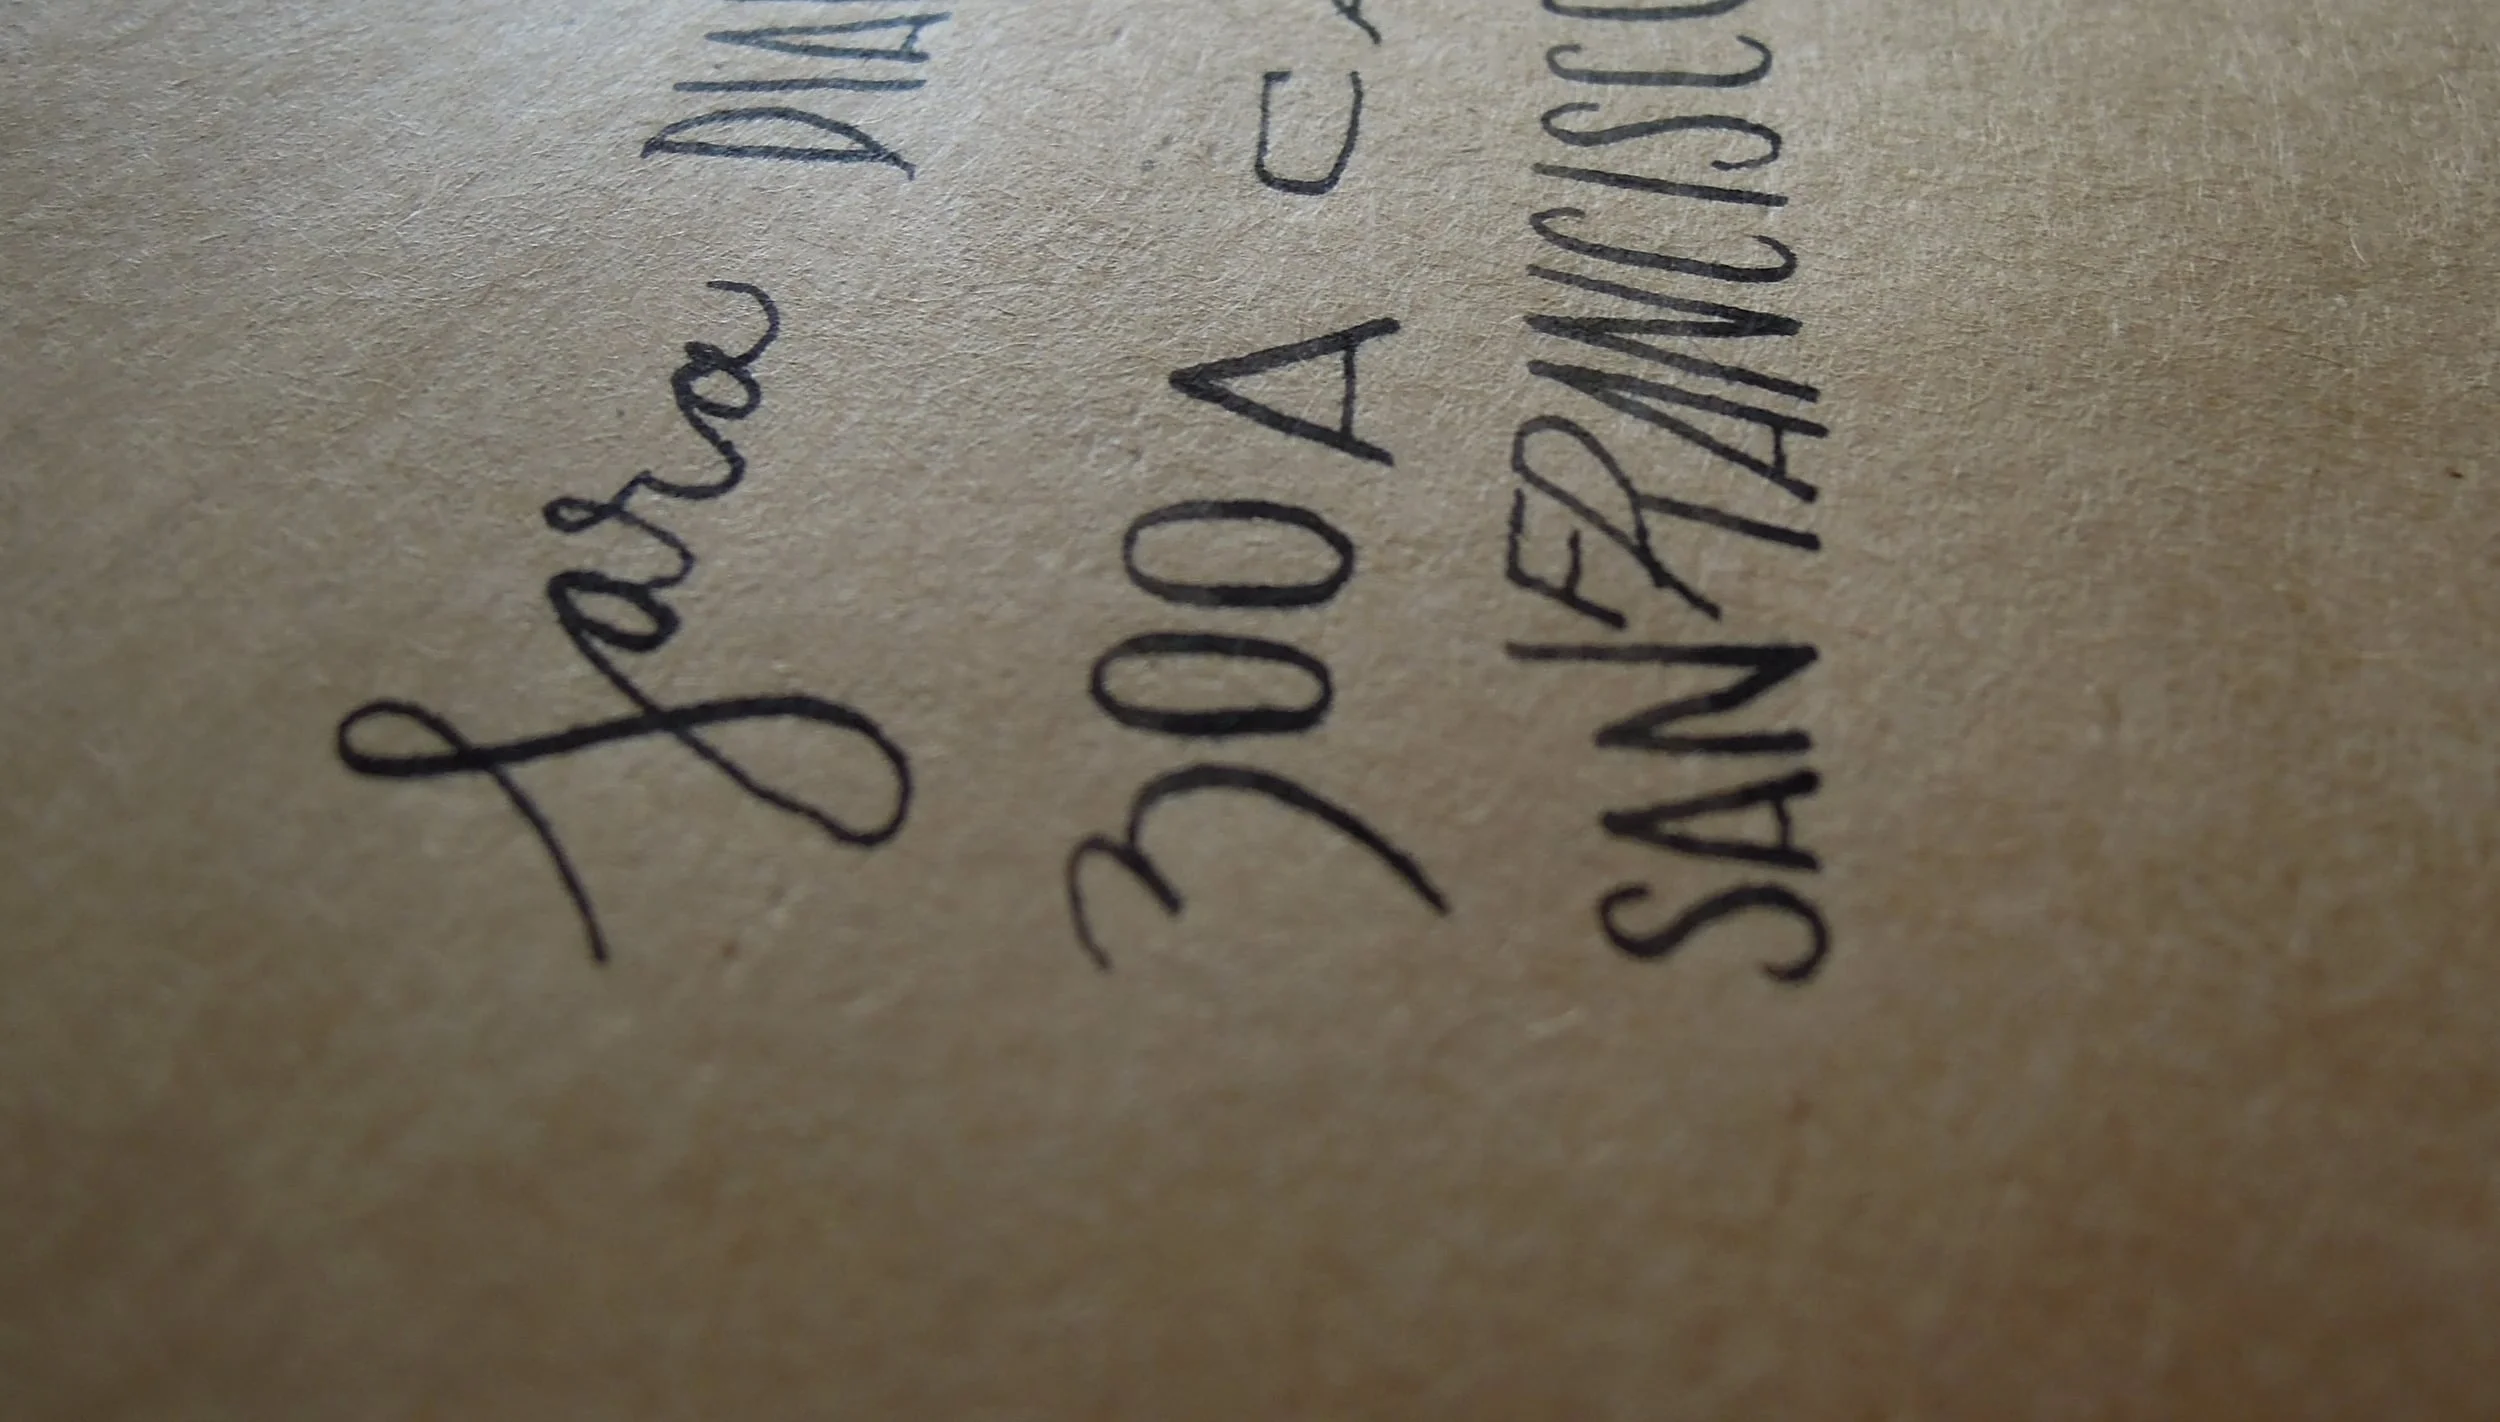 Sara DIA
300 A CA
SAN FRANCISCO